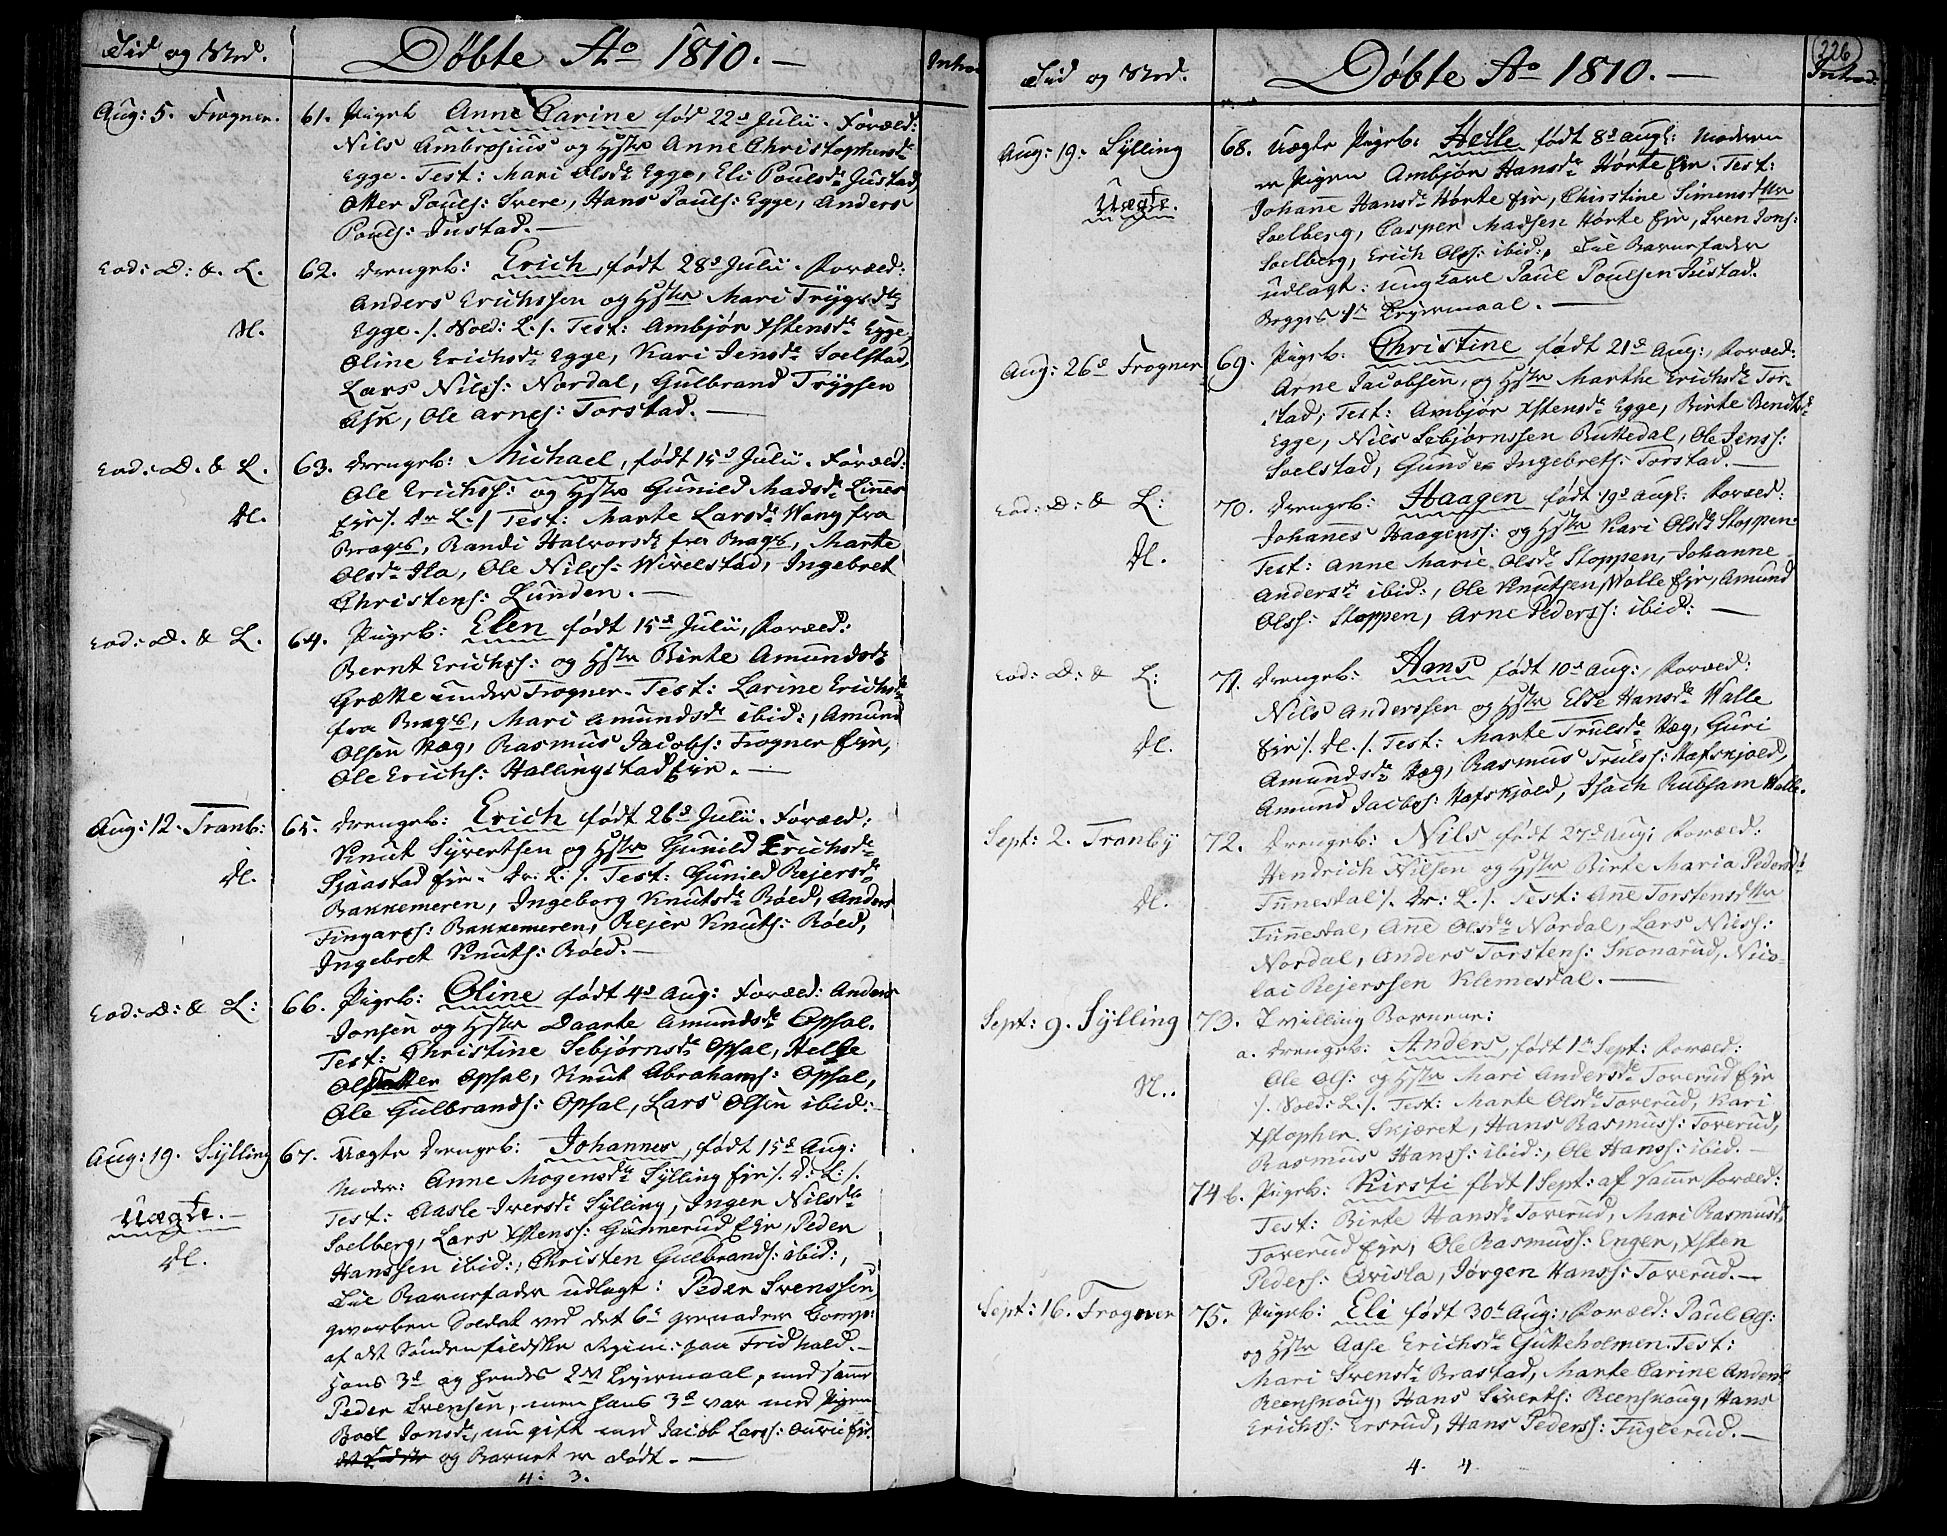 Tid og Sted.
Døbte Ao 1810.
Aug: 5. Frogner.
61. Pigeb. Anne Carine født 22d Julii. Foræld:
Nils Ambrosius og Hstr Anne Christophersd.
Egge. Test: Mari Olsd. Egge, Eli Poulsd. Justad,
Otter Pouls: Svere, Hans Pouls: Egge, Anders
Pouls: Justad.
Eod: D: &. L.
N.
62. Drengeb: Erich, født 28d Julii. Foræld:
Anders Erichssen og Hstr Mari Trygsd.
Egge. /. Noed: L. /. Test: Ambjør Xstensd. Egge,
Oline Erichsd. Egge, Kari Jensd. Soelstad,
Lars Nilss: Nordal, Gulbrand Trygsen
Ask, Ole Arnes: Torstad.
Eod: D. & L.
Dl.
63. Drengeb: Michael, født 15d Julii. Foræld:
Ole Erichss: og Hstr Gunild Madsd. Linnes
Ejr /. Dr L. / Test: Marte Larsd. Wang fra
Brags, Randi Halvorsd. fra Brags, Marte
Olsd. Ila, Ole Nilss: Wivelstad, Ingebret
Christens: Lunden.
Eod: D. & L.
64. Pigeb: Elen født 15d Julii, Foræld:
Bernt Erichss: og Hstr Birte Amundsd.
Grætte under Frogner. Test: Larine Erichsd.
fra Brags, Mari Amundsd. ibid:, Amund
Olsen Hæg, Rasmus Jacobs: Frogner Ejr,
Ole Erichs: Hallingstad Ejr.
Aug: 12. Tranb:
Dl.
65. Drengeb: Erich født 26d Julii. Foræld:
Knut Syvertsen og Hstr Gunild Erichsd.
Sjaastad Ejr. Dr: L. /. Test: Gunild Rejersd.
Bakkemeren, Ingeborg Knutsd. Røed, Anders
Fingarss: Bakkemeren, Rejer Knuts: Røed,
Ingebret Knuts: Røed.
Eod: D: & L:
66. Pigeb: Oline født 4d Aug: Foræld: Anders
Jonsen og Hstr Daarte Amundsd. Opsal.
Test: Christine Sebjørnsd. Opsal, Helle
Opsal, Knut Abrahams: Opsal,
Ole Gulbrands: Opsal, Lars Olsen ibid:
Aug: 19. Sylling
Uægte.
Dl.
67. Uægte Drengeb: Johannes, født 15d Aug:
Moder: Anne Mogensd. Sylling Ejr /. D: L: /.
Test: Aasle Iversd. Sylling, Inger Nilsd.
Soelberg, Lars Xstenss: Gunnerud Ejr, Peder
Hanssen ibid:, Christen Gulbrands: ibid:,
Til Barnefader udlagt: Peder Svenssen,
gevorben Soldat ved det 6te Grenader Comp:
af det Søndenfieldske Regim: paa Fridhald.
Hans 3d og hendes 2det Lejermaal, med samme
Peder Svensen, men hans 3d var med Pigen
Boel Jonsd., nu gift med Jacob Larss: Ejr.
og Barnet er dødt.
4. 3.
226
Tid og Sted.
Døbte Ao 1810.
Aug: 19. Sylling
Uægte.
68. Uægte Pigeb: Helle født 8d Aug: Moderen
er Pigen Ambjør Hansd. Hørte Ejr. Test:
Johanne Hansd. Hørte Ejr, Christine Simensd.
Soelberg, Casper Madsen Hørte Ejr, Sven Jons:
Soelberg, Erich Olss: ibid:, Til Barnefader
udlagt: ungkarl Paul Poulsen Justad.
Begges 1te Lejermaal.
Aug: 26d Frogner
69. Pigeb: Christine født 21d Aug:, Foræld:
Arne Jacobsen, og Hstr Marthe Erichsd. Tor-
stad, Test: Ambjør Xstensd. Egge, Birte Bendtsd.
Egge, Nils Sebjørnssen Buttedal, Ole Jenss:
Soelstad, Gunder Ingebrets: Torstad.
Eod: D: & L:
Dl.
70. Drengeb: Haagen født 19d Aug: Foræld:
Johanes Haagenss: og Hstr Kari Olsd. Stoppen.
Test: Anne Marie Olsd. Stoppen, Johanne
Andersd. ibid:, Ole Knutsen Walle Ejr, Amund
Olss: Stoppen, Arne Pederss: ibid:
Eod: D: & L:
Dl.
71. Drengeb: Hans født 10d Aug:, Foræld:
Nils Anderssen og Hstr Else Hansd. Walle
Ejr /. Dl. /. Test: Marte Trulsd. Hæg, Guri
Amundsd. Hæg, Rasmus Trulss: Hafskjold,
Amund Jacobs: Hafskjold, Isach Rubsam Walle.
Sept: 2. Tranby
Dl.
72. Drengeb: Nils født 27d Aug: Foræld:
Hendrich Nilsen og Hstr Birte Maria Pedersd.
Tinnesdal /. Dr: L. /. Test: Ane Torstensd.
Tinnesdal, Ane Olsd. Nordal, Lars Nilss:
Nordal, Anders Torstens: Skonarud, Nico-
lai Rejerssen Klemesdal.
Sept: 9. Sylling
N..
73. Tvilling Børnene:
a. Drengeb: Anders, født 1te Sept: Foræld:
Ole Ols: og Hstr Mari Andersd. Toverud Ejr
/. Noed: L. /. Test: Marte Olsd. Toverud, Kari
Xstopher. Skjæret, Hans Rasmuss: Toverud,
Rasmus Hanss: ibid:, Ole Hanss: ibid.
74 b. Pigeb: Kirsti født 1 Sept: af samme Foræld:
Test: Birte Hansd. Toverud, Mari Rasmusd.
Toverud Ejr, Ole Rasmuss: Enger, Xsten
Peders: Qvisla, Jørgen Hanss: Toverud.
Sept: 16. Frogner
75. Pigeb: Eli født 30d Aug:, Foræld: Paul Ols:
og Hstr Aase Erichsd. Gukkeholmen. Test:
Mari Svensd. Brastad, Marte Carine Anders
Reenskoug, Hans Siverts: Reenskoug, Hans
Erichs: Ersrud, Hans Pederss: Fuglerud.
4. 4